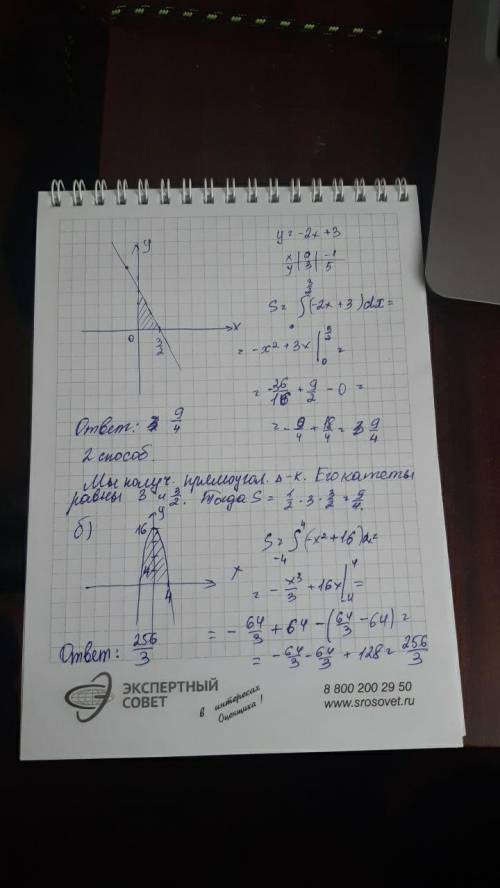 y = -2x + 3
x | 0 | -1
y | 3 | 5
y
x
0
3/2
S = ∫₀^{3/2} (-2x + 3) dx =
= -x² + 3x |₀^{3/2} =
= -36/16 + 9/2 - 0 =
= -9/4 + 18/4 = 9/4
Ответ: 9/4
2 способ.
Мы получ. прямоугол. Δ-к. Его катеты
равны 3 и 3/2. Тогда S = 1/2 · 3 · 3/2 = 9/4.
б)
y
16
4
x
S = ∫₋₄⁴ (-x² + 16) dx =
= -x³/3 + 16x |₋₄⁴ =
= -64/3 + 64 - (64/3 - 64) =
= -64/3 - 64/3 + 128 = 256/3
Ответ: 256/3
ЭКСПЕРТНЫЙ
СОВЕТ
в интересах
Оценщика!
8 800 200 29 50
www.srosovet.ru